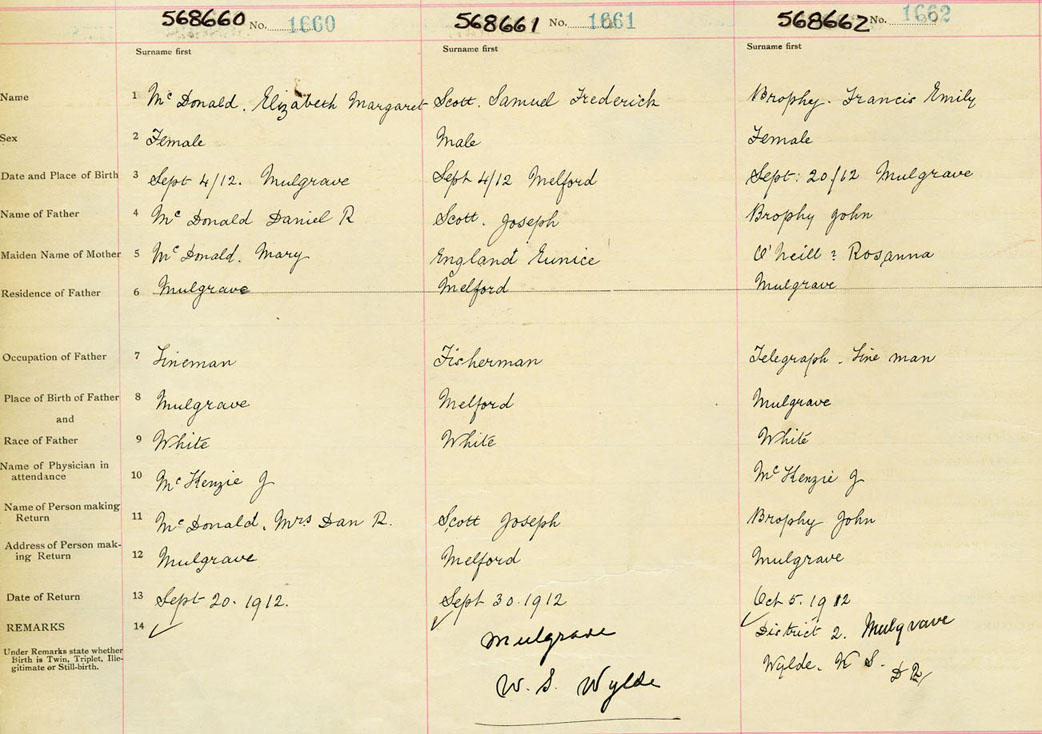 568660 No. 1660 568661 No. 1661 568662 No. 1662
Surname first Surname first Surname first
Name 1 McDonald. Elizabeth Margaret Scott. Samuel Frederick Brophy. Francis Emily
Sex 2 Female Male Female
Date and Place of Birth 3 Sept 4/12. Mulgrave Sept 4/12 Melford Sept: 20/12 Mulgrave
Name of Father 4 McDonald Daniel R Scott. Joseph Brophy John
Maiden Name of Mother 5 McDonald. Mary England Eunice O'Neill : Rosanna
Residence of Father 6 Mulgrave Melford Mulgrave
Occupation of Father 7 Lineman Fisherman Telegraph. Line man
Place of Birth of Father 8 Mulgrave Melford Mulgrave
and
Race of Father 9 White White White
Name of Physician in
attendance 10 McKenzie J McKenzie J
Name of Person making
Return 11 McDonald, Mrs Dan R. Scott Joseph Brophy John
Address of Person mak-
ing Return 12 Mulgrave Melford Mulgrave
Date of Return 13 Sept 20. 1912. Sept 30. 1912 Oct 5. 1912
REMARKS 14 ✓ ✓ Mulgrave ✓ District 2. Mulgrave
Under Remarks state whether
Birth is Twin, Triplet, Ille-
gitimate or Still-birth.
W. S. Wylde Wylde. W S. DR